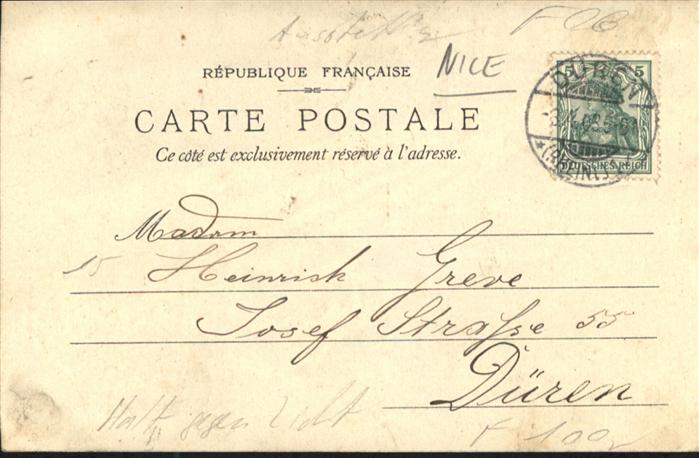 Ausstellg
F OB
NICE
RÉPUBLIQUE FRANÇAISE
CARTE POSTALE
Ce côté est exclusivement réservé à l'adresse.
5 5
DEUTSCHES REICH
DÜREN
(RHEINL.)
Madam
15 Heinrich Greve
Josef Straße 55
Düren
Halt gegen Licht
F 100,